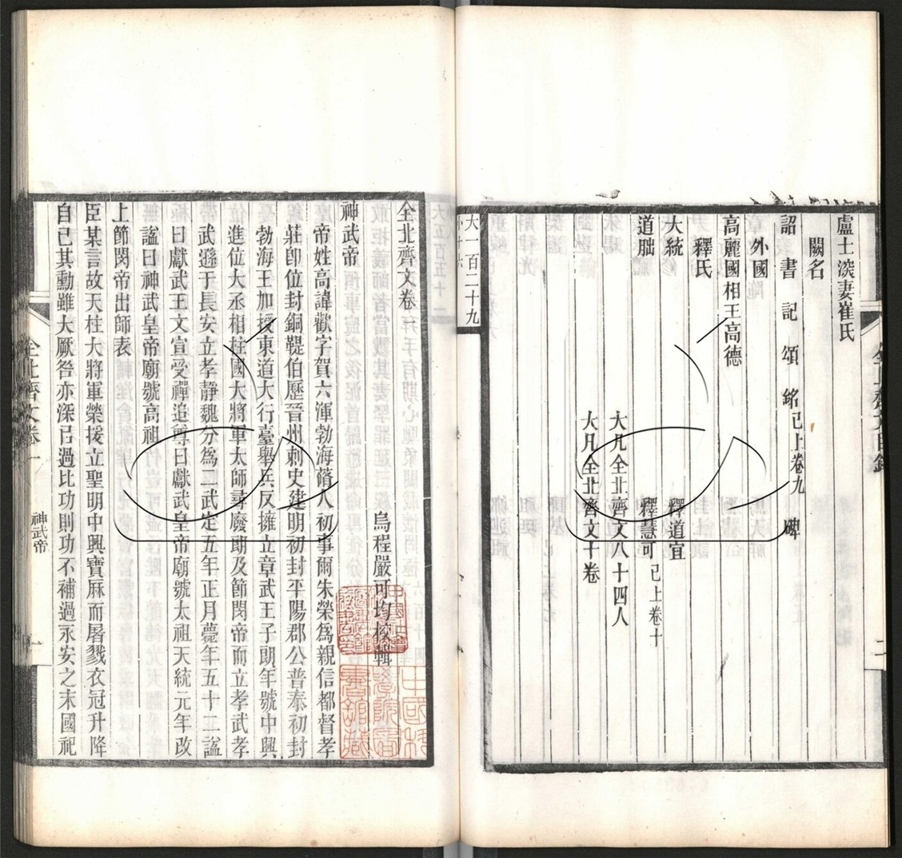 盧士深妻崔氏
闕名
詔 書 記 頌 銘 碑 已上卷九
外國
高麗國相王高德
釋氏
大統 釋道宣
道朏 釋慧可 已上卷十
大凡全北齊文八十四人
大凡全北齊文十卷
大一百二十九
全北齊文卷一
烏程嚴可均校輯
神武帝
帝姓高諱歡字賀六渾勃海蓨人初事爾朱榮為親信都督孝
莊卽位封銅鞮伯歷晉州刺史建明初封平陽郡公普泰初封
勃海王加授東道大行臺舉兵反擁立章武王子朗年號中興
進位大丞相柱國大將軍太師尋廢朗及節閔帝而立孝武孝
武遜于長安立孝靜魏分為二武定五年正月薨年五十二謚
曰獻武王文宣受禪追尊曰獻武皇帝廟號太祖天統元年改
謚曰神武皇帝廟號高祖
上節閔帝出師表
臣某言故天柱大將軍榮援立聖明中興寶厤而屠戮衣冠升降
自己其勳雖大厥咎亦深已過比功則功不補過永安之末國祀
全北齊文卷一
神武帝
一